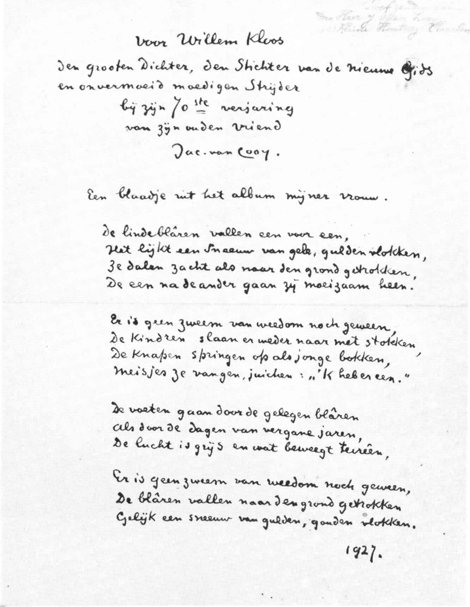 Voor Willem Kloos
den grooten Dichter, den Stichter van de Nieuwe Gids
en onvermoeid moedigen Strijder
bij zijn 70ste verjaring
van zijn ouden vriend
Jac. van Looy.
Een blaadje uit het album mijner vrouw.
De lindeblâren vallen een voor een,
Het lijkt een sneeuw van gele, gulden vlokken,
Ze dalen zacht als naar den grond getrokken,
De een na de ander gaan zij moeizaam heen.
Er is geen zweem van weedom noch geween,
De kindren slaan er weder naar met stokken,
De knapen springen op als jonge bokken,
Meisjes ze vangen, juichen: „'k heb er een."
De voeten gaan door de gelegen blâren
Als door de dagen van vergane jaren,
De lucht is grijs en wat beweegt
Er is geen zweem van weedom noch geween,
De blâren vallen naar den grond getrokken
Gelijk een sneeuw van gulden, gouden vlokken.
1927.